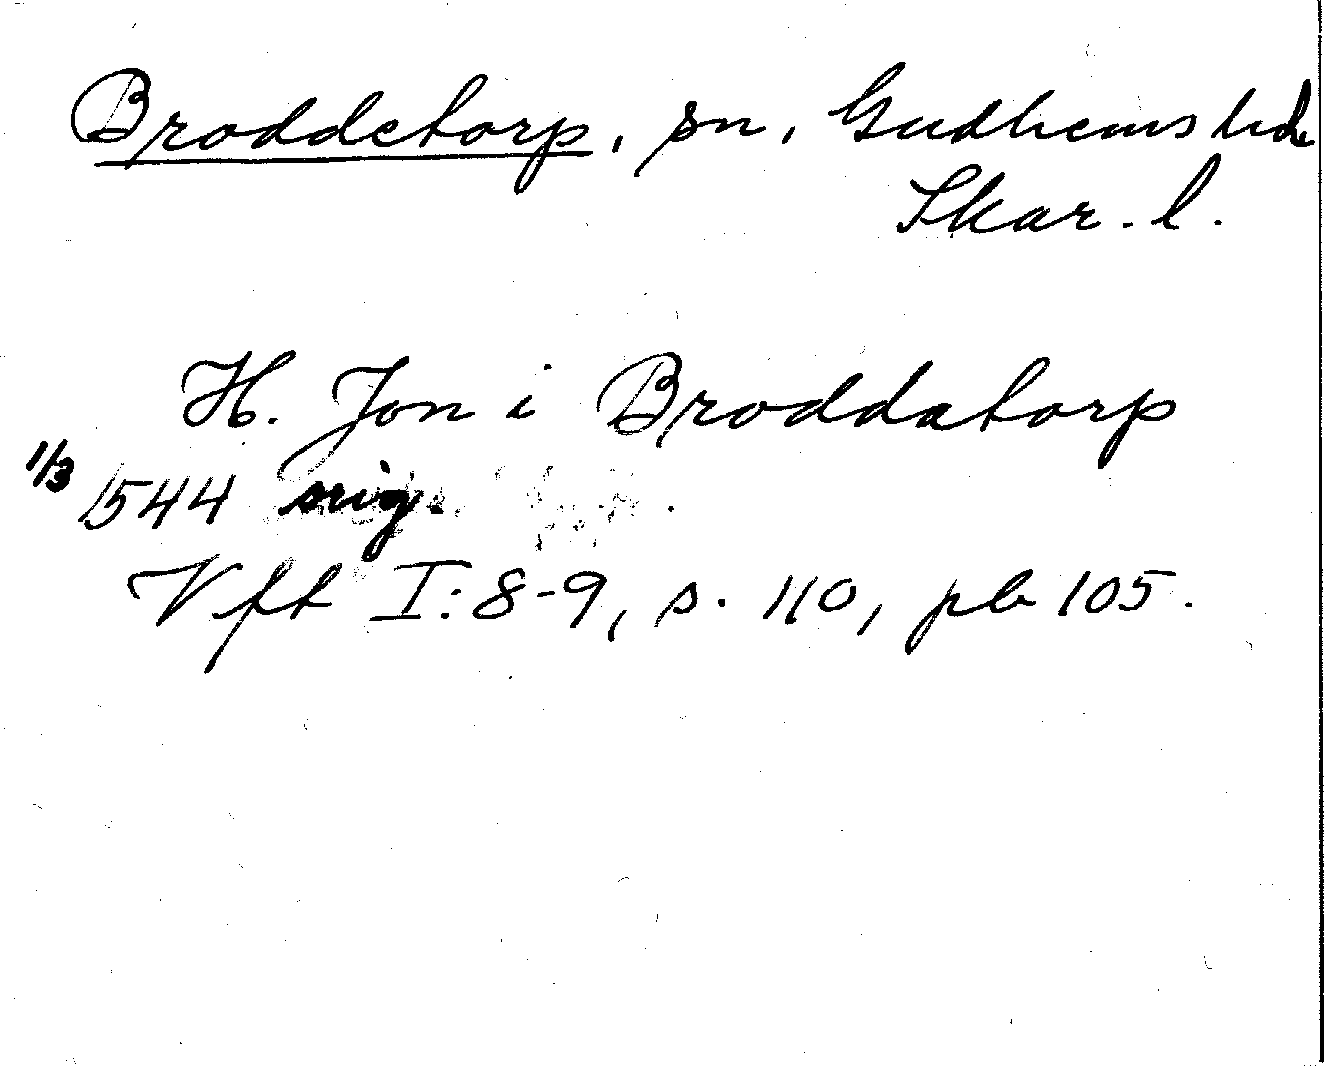 Broddetorp, sn, Gudhems hd
Skar. l.
H. Jon i Broddatorp
1/3 1544
Vft I:8-9, s. 110, pb 105.